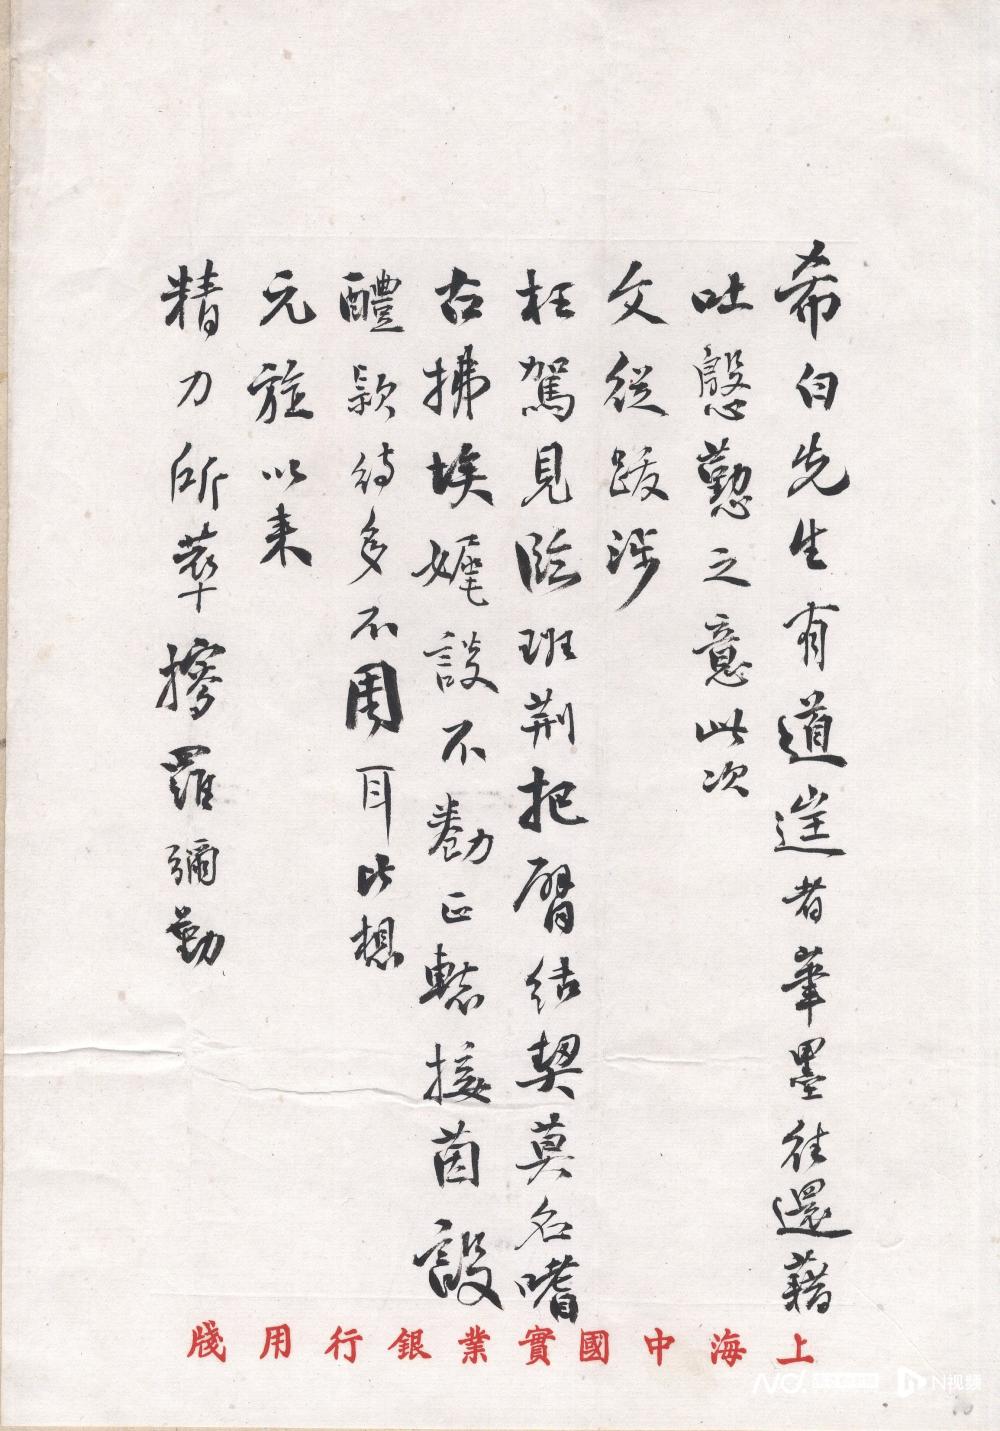 希白先生有道迬者筆墨往還藉
吐慇懃之意此次
文從跋涉
枉駕見臨班荆把臂結契莫名嗜
古拂埃娓談不勌正轅接茵設
醴款待多不周耳比想
元旋以来
精力所萃搜羅彌勤
上海中國實業銀行用牋
N视频